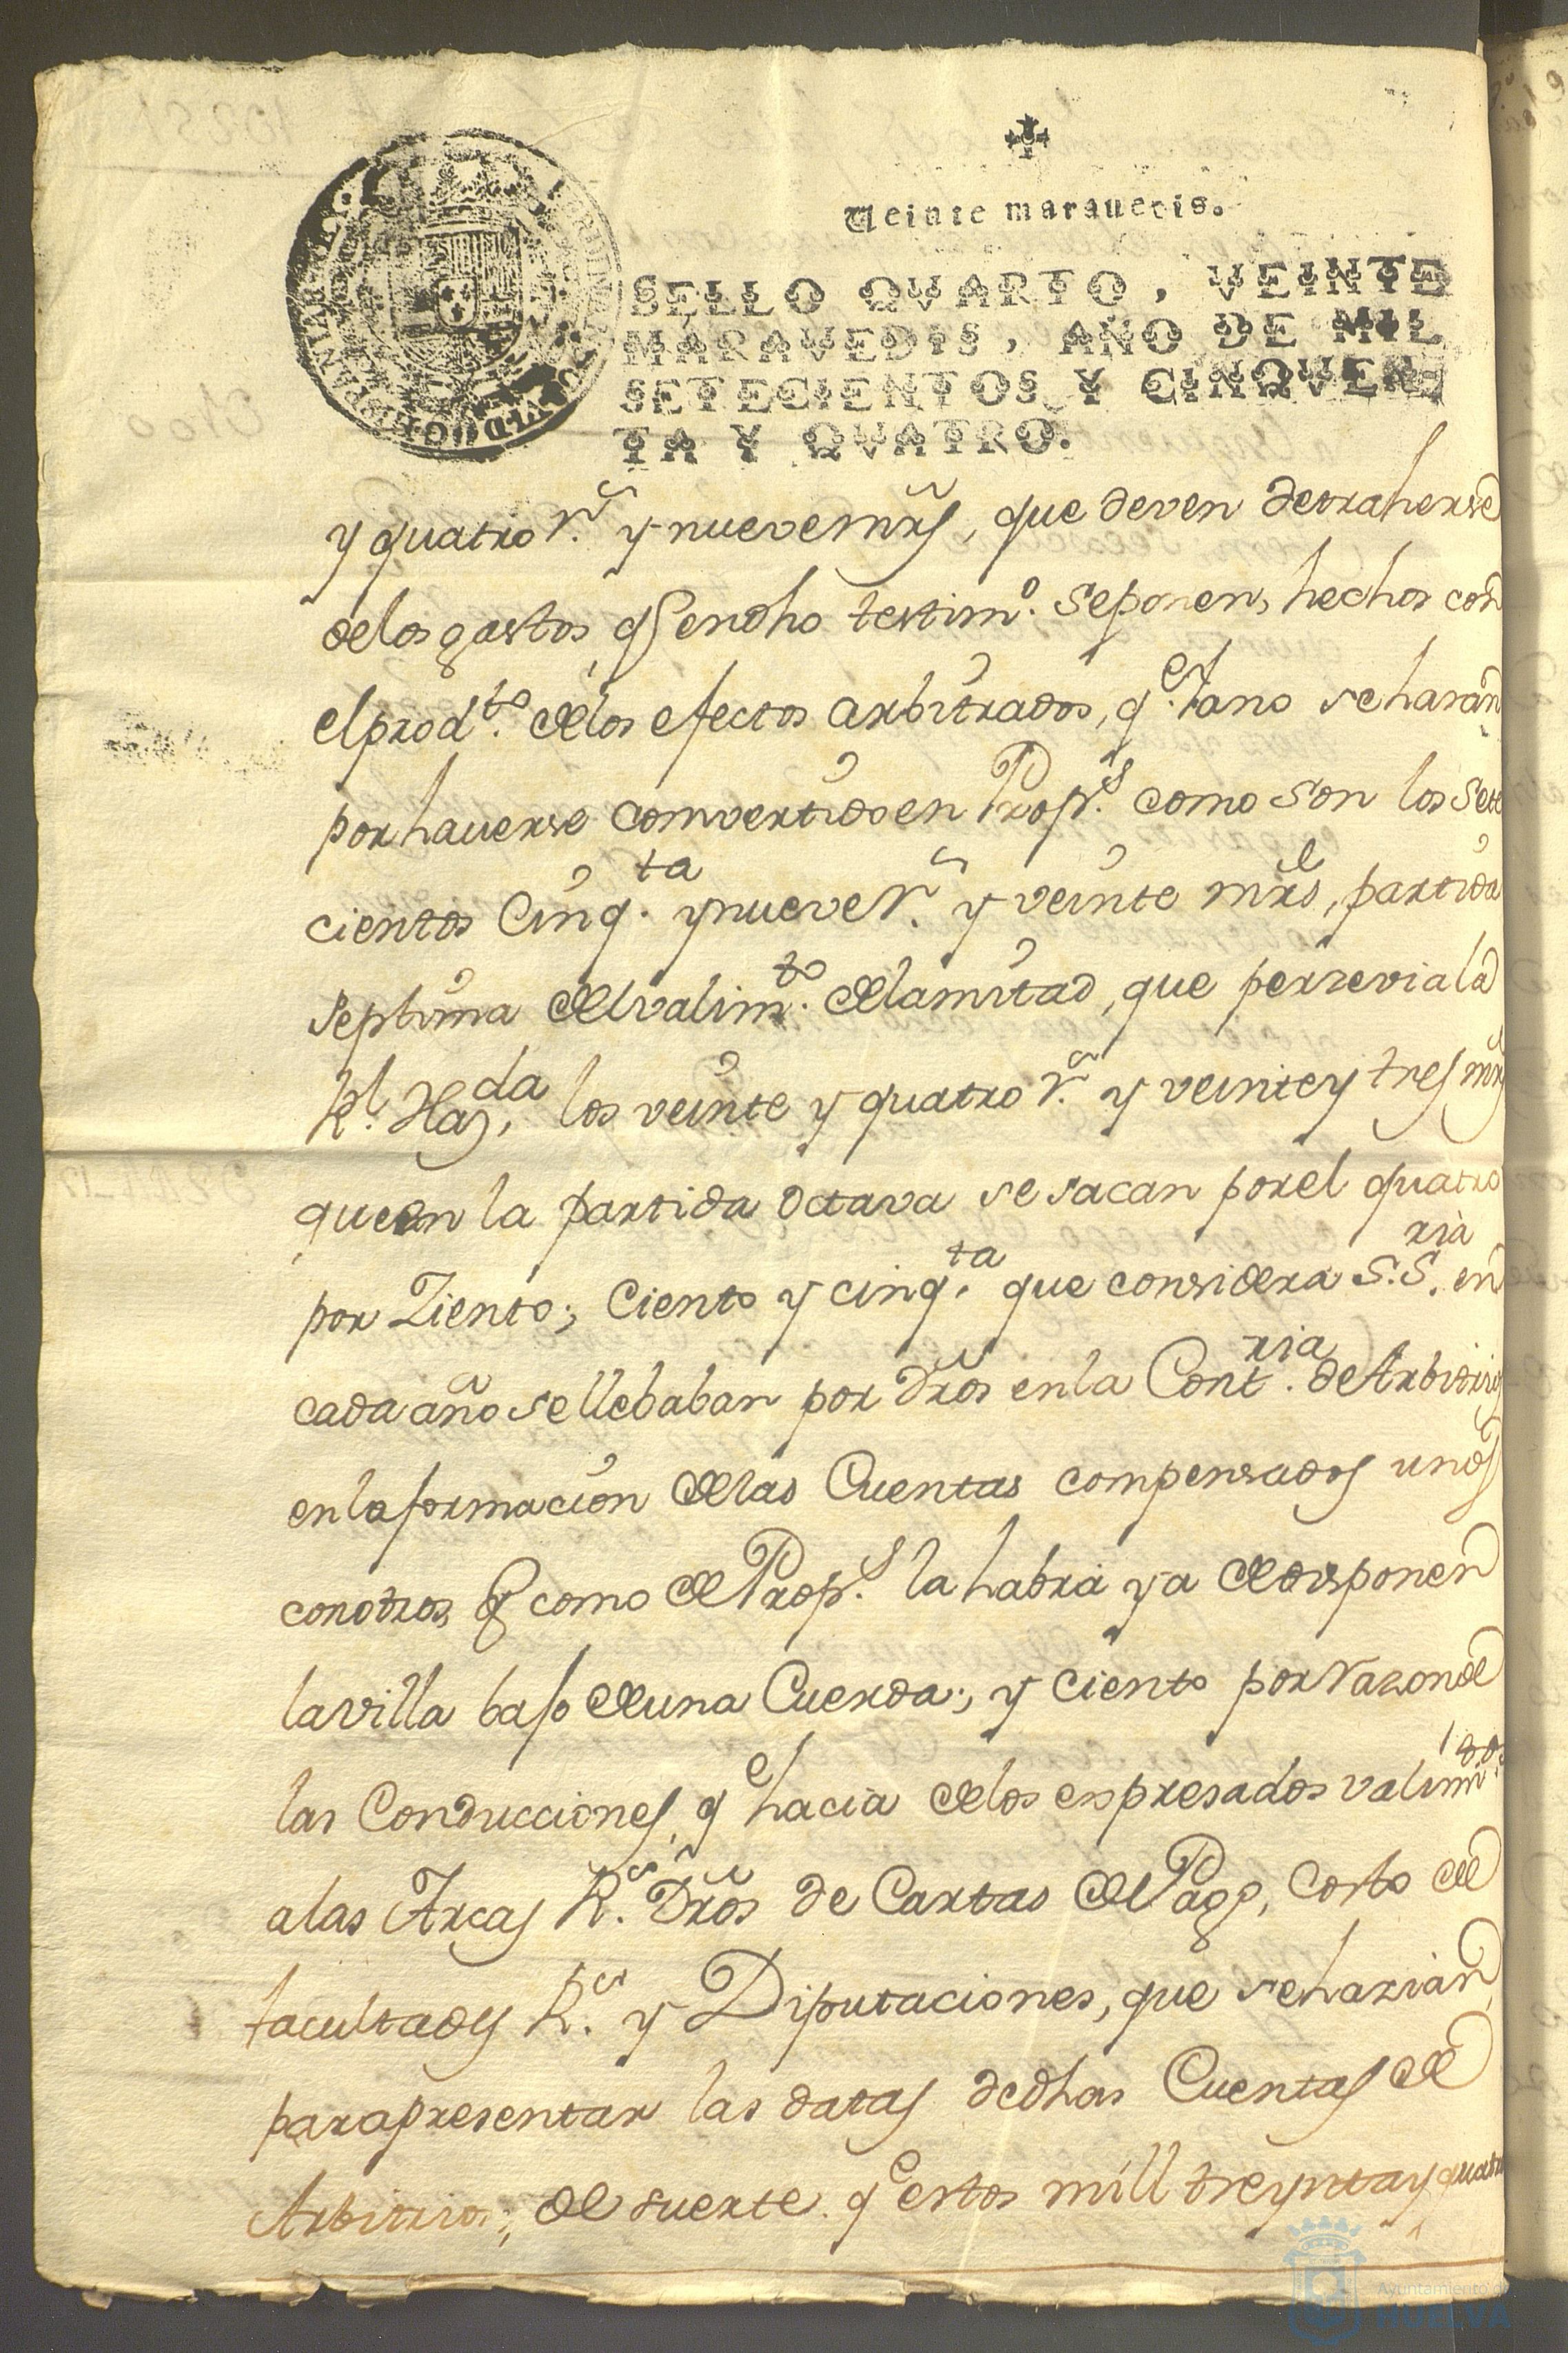 Veinte maravedis.
SELLO QVARTO, VEINTE
MARAVEDIS, AÑO DE MIL
SETECIENTOS Y CINQVEN
TA Y QVATRO.
y quatro r.s y nueve mrs, que deven detraherse
de los gastos q.e en dho testim.o se ponen, hechos con
el prod.to de los efectos arbitrados, q.e ya no se haran
por haverse comvertido en Prop.s como son los sete
cientos Cinq.ta y nueve r.s y veinte mrs, partida
septima del valim.to de la mitad, que perzevia la
R.l Haz.da los veinte y quatro r.s y veinte y tres mrs
que en la partida octava se sacan por el quatro
por Ziento; ciento y cinq.ta que considera S.S.ria en
cada año se llebaban por Dros en la Cont.ria de Arbitrios
en la formacion de las Cuentas compensados unos
con otros, q como de Prop.s la habrá ya de disponer
la villa bajo de una Cuerda; y ciento por razon de
las Conducciones, q.e hacia de los expresados valim.tos
a las Arcas R.s Dros de Cartas de Pago, Costo de
facultades R.s y Diputaciones, que se harian
para presentar las datas de dhas Cuentas de
Arbitrios; de suerte q.e estos mill treynta y quatro
Ayuntamiento de
HUELVA